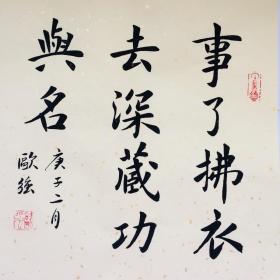 事了拂衣
去深藏功
與名
庚子二月
歐强